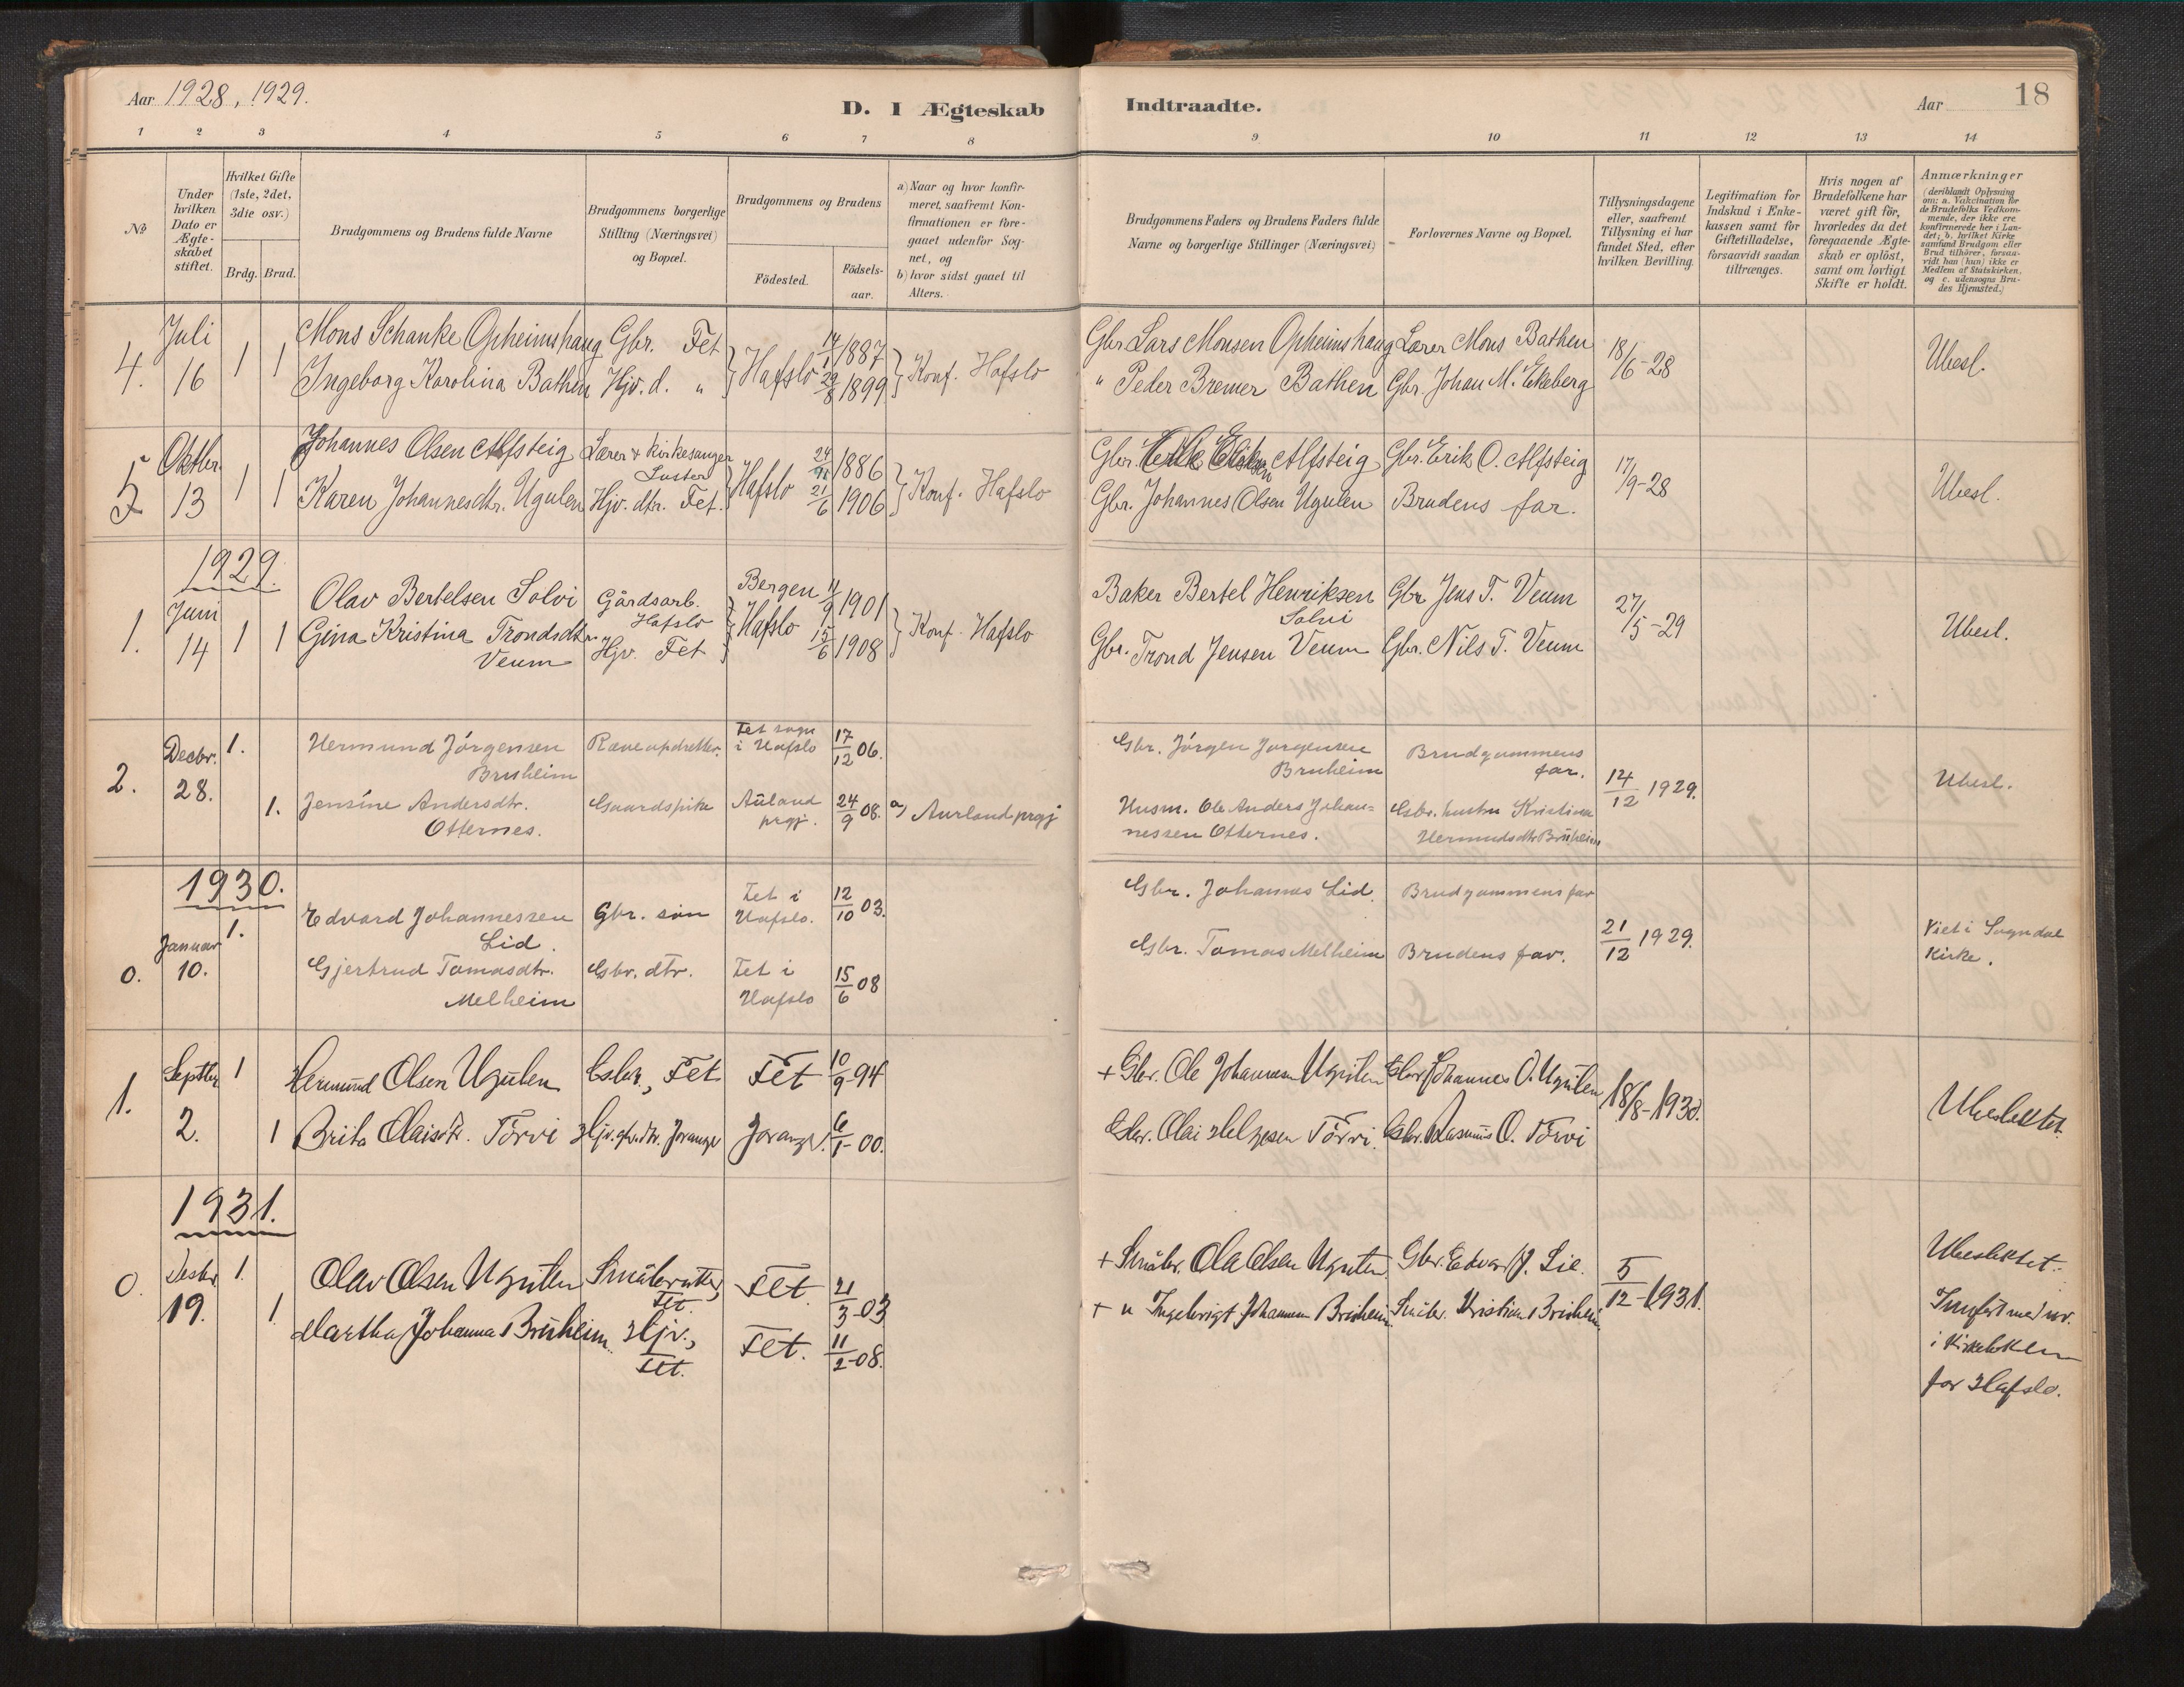 Aar 1928, 1929.
D. I Ægteskab Indtraadte.
Aar 18
1 2 3 4 5 6 7 8 9 10 11 12 13 14
No
Under hvilken Dato er Ægteskabet stiftet.
Hvilket Gifte (1ste, 2det, 3die osv.)
Brdg. Brud.
Brudgommens og Brudens fulde Navne
Brudgommens borgerlige Stilling (Næringsvei) og Bopæl.
Brudgommens og Brudens
Födested.
Födsels-aar.
a) Naar og hvor konfir-
meret, saafremt Kon-
firmationen er fore-
gaaet udenfor Sog-
net, og
b) hvor sidst gaaet til
Alters.
Brudgommens Faders og Brudens Faders fulde
Navne og borgerlige Stillinger (Næringsvei)
Forlovernes Navne og Bopæl.
Tillysningsdagene
eller, saafremt
Tillysning ei har
fundet Sted, efter
hvilken Bevilling.
Legitimation for
Indskud i Enke-
kassen samt for
Giftetilladelse,
forsaavidt saadan
tiltrænges.
Hvis nogen af
Brudefolkene har
været gift för,
hvorledes da det
foregaaende Ægte-
skab er oplöst,
samt om lovligt
Skifte er holdt.
Anmærkninger
(deriblandt Oplysning
om: a. Vakcination for
de Brudefolks Vedkom-
mende, der ikke ere
konfirmerede her i Lan-
det; b. hvilket Kirke
samfund Brudgom eller
Brud tilhörer, forsaa-
vidt han (hun) ikke er
Medlem af Statskirken,
og c. udensogns Bru-
des Hjemsted.)
4. Juli 16 1 1
Mons Schanke Opheimshaug Gbr. Fet 14/1 1887
Ingeborg Karolina Bathen Hjv. d. " Hafslo 29/8 1899 Konf. Hafslo
Gbr. Lars Monsen Opheimshaug Lærer Mons Bathen 18/6-28 Ubesl.
" Peder Bremer Bathen Gbr. Johan M. Ekeberg
5 Oktbr. 13 1 1
Johannes Olsen Alfsteig Lærer & kirkesanger Luster 24/ 1886
Karen Johannesdtr. Ugulen Hjv. dtr. Fet. Hafslo 21/6 1906 Konf. Hafslo
Gbr. Alfsteig Gbr. Erik O. Alfsteig 17/9-28 Ubesl.
Gbr. Johannes Olsen Ugulen Brudens far.
1929.
1. Juni 14 1 1
Olav Bertelsen Solvi Gårdsarb. Hafslo Bergen 11/9 1901
Gina Kristina Trondsdtr. Hjv. Fet Hafslo 15/6 1908 Konf. Hafslo
Veum
Baker Bertel Henriksen Gbr Jens T. Veum 27/5-29 Ubesl.
Solvi
Gbr. Trond Jensen Veum Gbr. Nils T. Veum
2. Decbr. 28. 1. 1.
Hermund Jörgensen Ræveopdretter. Fet sogn 17/12 06.
Bruheim i Hafslo
Jensine Andersdtr. Gaardspike Aŭland 24/9 08. a) Aurland prgj
Otternes. prgj.
Gbr. Jörgen Jörgensen Brudgommens
Bruheim far. 14/12 1929. Ubesl.
Husm. Ole Anders Johan= Gbr. hustru Kristina
nessen Otternes. Hermundsdtr Brŭheim
1930.
0. Januar 10. 1.
Edvard Johannessen Gbr. sön Fet i 12/10 03.
Lid. Hafslo.
Gjertrud Tomasdtr. Gbr. dtr. Fet i 15/6 08
Melheim Hafslo
Gbr. Johannes Lid. Brudgommens far 21/12 1929. Viet i Sogndal
Gbr. Tomas Melheim Brudens far. Kirke.
1. Septbr 2. 1 1
Hermund Olsen Ugŭlen Gbr., Fet Fet 10/9-94
Brita Olaisdtr. Törvi Hjv. gbr. dtr. Joranger Joranger. 6/1-00.
+ Gbr. Ole Johannesen Ugŭlen Gbr. Johannes O. Ugŭlen 18/8-1930. Ubeslektet.
Gbr. Olai Helgesen Törvi. Gbr. Rasmŭs O. Törvi
1931.
0. Desbr 19. 1. 1.
Olav Olsen Ugŭlen Småbruker, Fet. Fet. 21/3-03
Martha Johanna Brŭheim. Hjv., Fet. Fet. 11/2-08.
+ Småbr. Ola Olsen Ugŭlen. Gbr. Edvard J. Lie. 5/12-1931. Ubeslektet.
+ " Ingebrigt Johannesen Brŭheim. Småbr. Kristian I Brŭheim. Innfört med nr.
i Kirkeboken
for Hafslo.